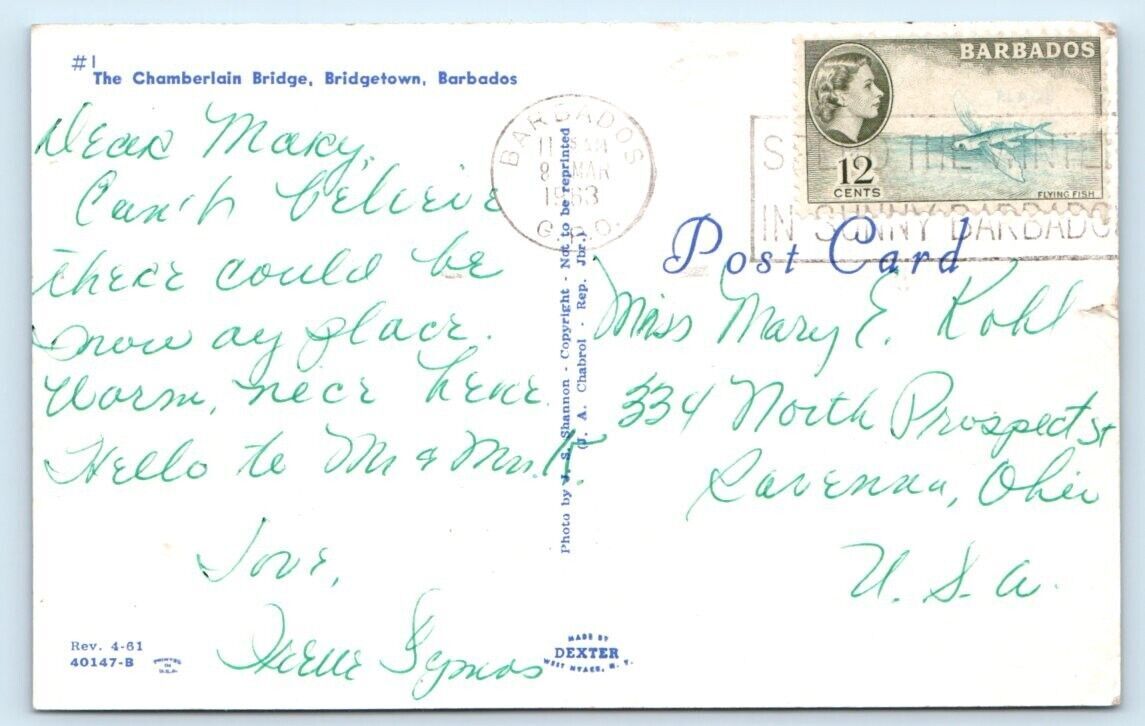 #1
The Chamberlain Bridge, Bridgetown, Barbados
Dear Mary,
Can't believe
there could be
snow any place.
Warm, nice here.
Hello to Mr & Mrs. K.
Love,
Irene
Rev. 4-61
40147-B
PRINTED
IN
U.S.A.
Photo by J. S. Shannon - Copyright - Not to be reprinted
(J. A. Chabrol - Rep. Jbr.)
MADE BY
DEXTER
WEST NYACK, N. Y.
BARBADOS
MAR
1963
G.P.O.
IN SUNNY BARBADO
BARBADOS
12
CENTS
FLYING FISH
Post Card
Miss Mary E. Kohl
334 North Prospect St
Ravenna, Ohio
U. S. A.